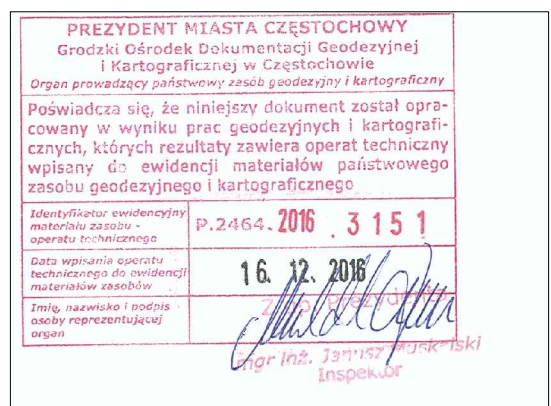 PREZYDENT MIASTA CZĘSTOCHOWY
Grodzki Ośrodek Dokumentacji Geodezyjnej
i Kartograficznej w Częstochowie
Organ prowadzący państwowy zasób geodezyjny i kartograficzny
Poświadcza się, że niniejszy dokument został opra-
cowany w wyniku prac geodezyjnych i kartografi-
cznych, których rezultaty zawiera operat techniczny
wpisany do ewidencji materiałów państwowego
zasobu geodezyjnego i kartograficznego
Identyfikator ewidencyjny
materiału zasobu -
operatu technicznego
P.2464.2016 . 3151
Data wpisania operatu
technicznego do ewidencji
materiałów zasobów
16. 12. 2016
Imię, nazwisko i podpis
osoby reprezentującej
organ
Prezydenta
mgr inż. Janusz
Inspektor